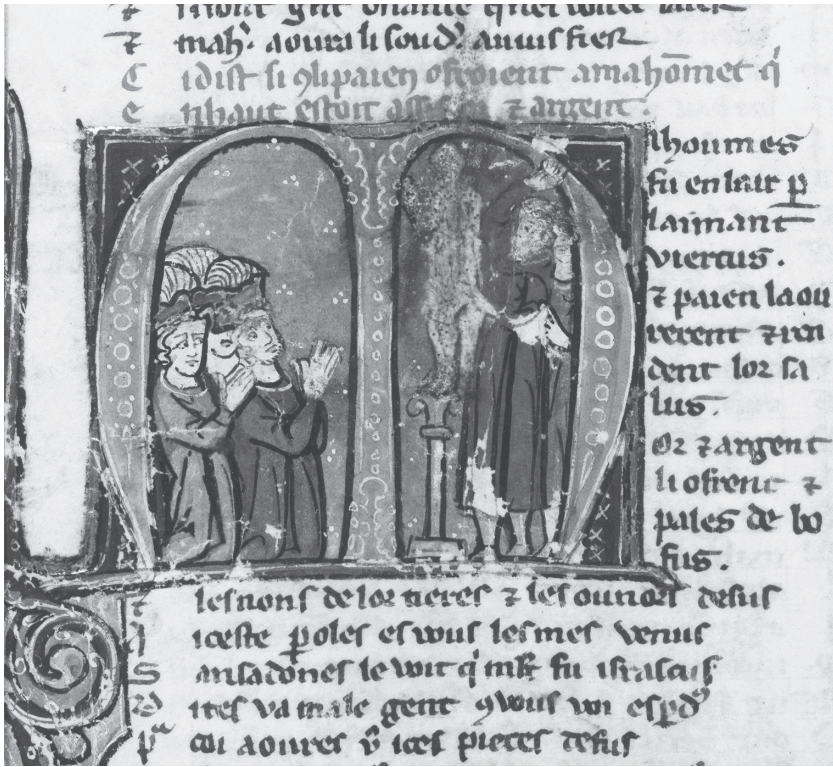 mah̄. aoura li soud᾿. a vuis fier
C i dist si 9 li paien ofroient a mahōmet q̇
e n haut estoit assis or ⁊ argent.
ahoumes
fu en lair p̲
laimant
viertus.
⁊ paien laou
rerent ⁊ ren
dent lor sa
lus.
Or ⁊ argent
li ofrent ⁊
pales de bo
fus.
t les nons de lor tieres ⁊ les ounors desus
iceste p̲oles es wus les mes venus
S ansadones le voit q̇ mlt̄ fu irascus
D ites va male gent 9 vous voi esp̲d᾿
p coi aoures v̄ ices pieres desus